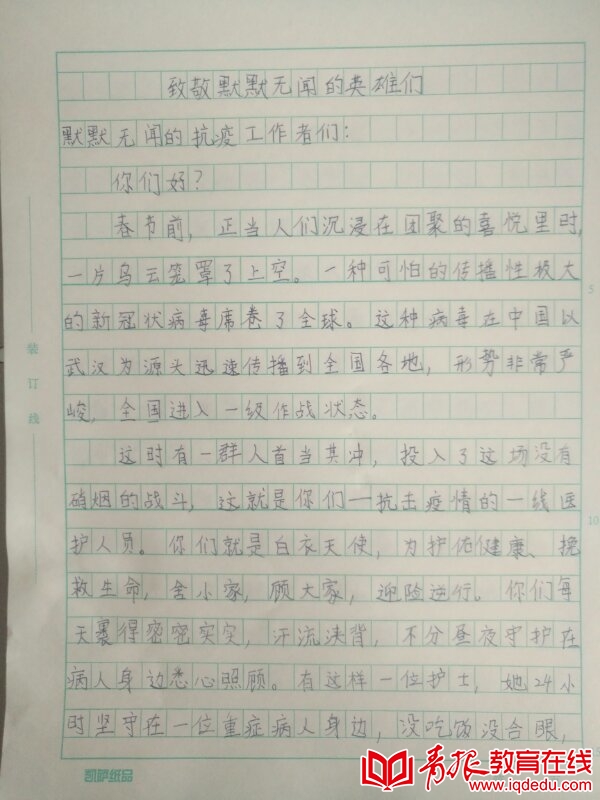 致敬默默无闻的英雄们
默默无闻的抗疫工作者们：
你们好？
春节前，正当人们沉浸在团聚的喜悦里时，
一片乌云笼罩了上空。一种可怕的传播性极大
的新冠状病毒席卷了全球。这种病毒在中国以
武汉为源头迅速传播到全国各地，形势非常严
峻，全国进入一级作战状态。
这时有一群人首当其冲，投入了这场没有
硝烟的战斗，这就是你们一抗击疫情的一线医
护人员。你们就是白衣天使，为护佑健康、挽
救生命，舍小家，顾大家，迎险逆行。你们每
天裹得密密实实，汗流浃背，不分昼夜守护在
病人身边悉心照顾。有这样一位护士，她24小
时坚守在一位重症病人身边，没吃饭没合眼，
装订线
5
10
凯萨纸品
青报教育在线
www.iqdedu.com